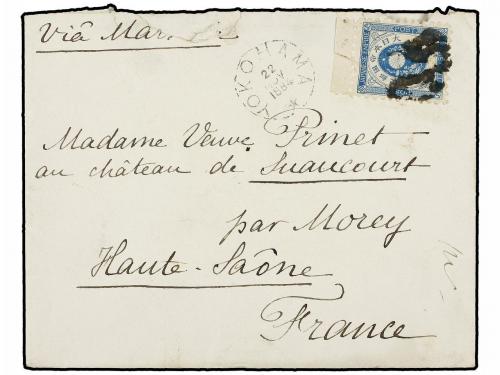 Viâ Mar.
YOKOHAMA
22
NOV
188
Madame Veuve Prinet
au château de Suaucourt
par Morey
Haute-Saône
France